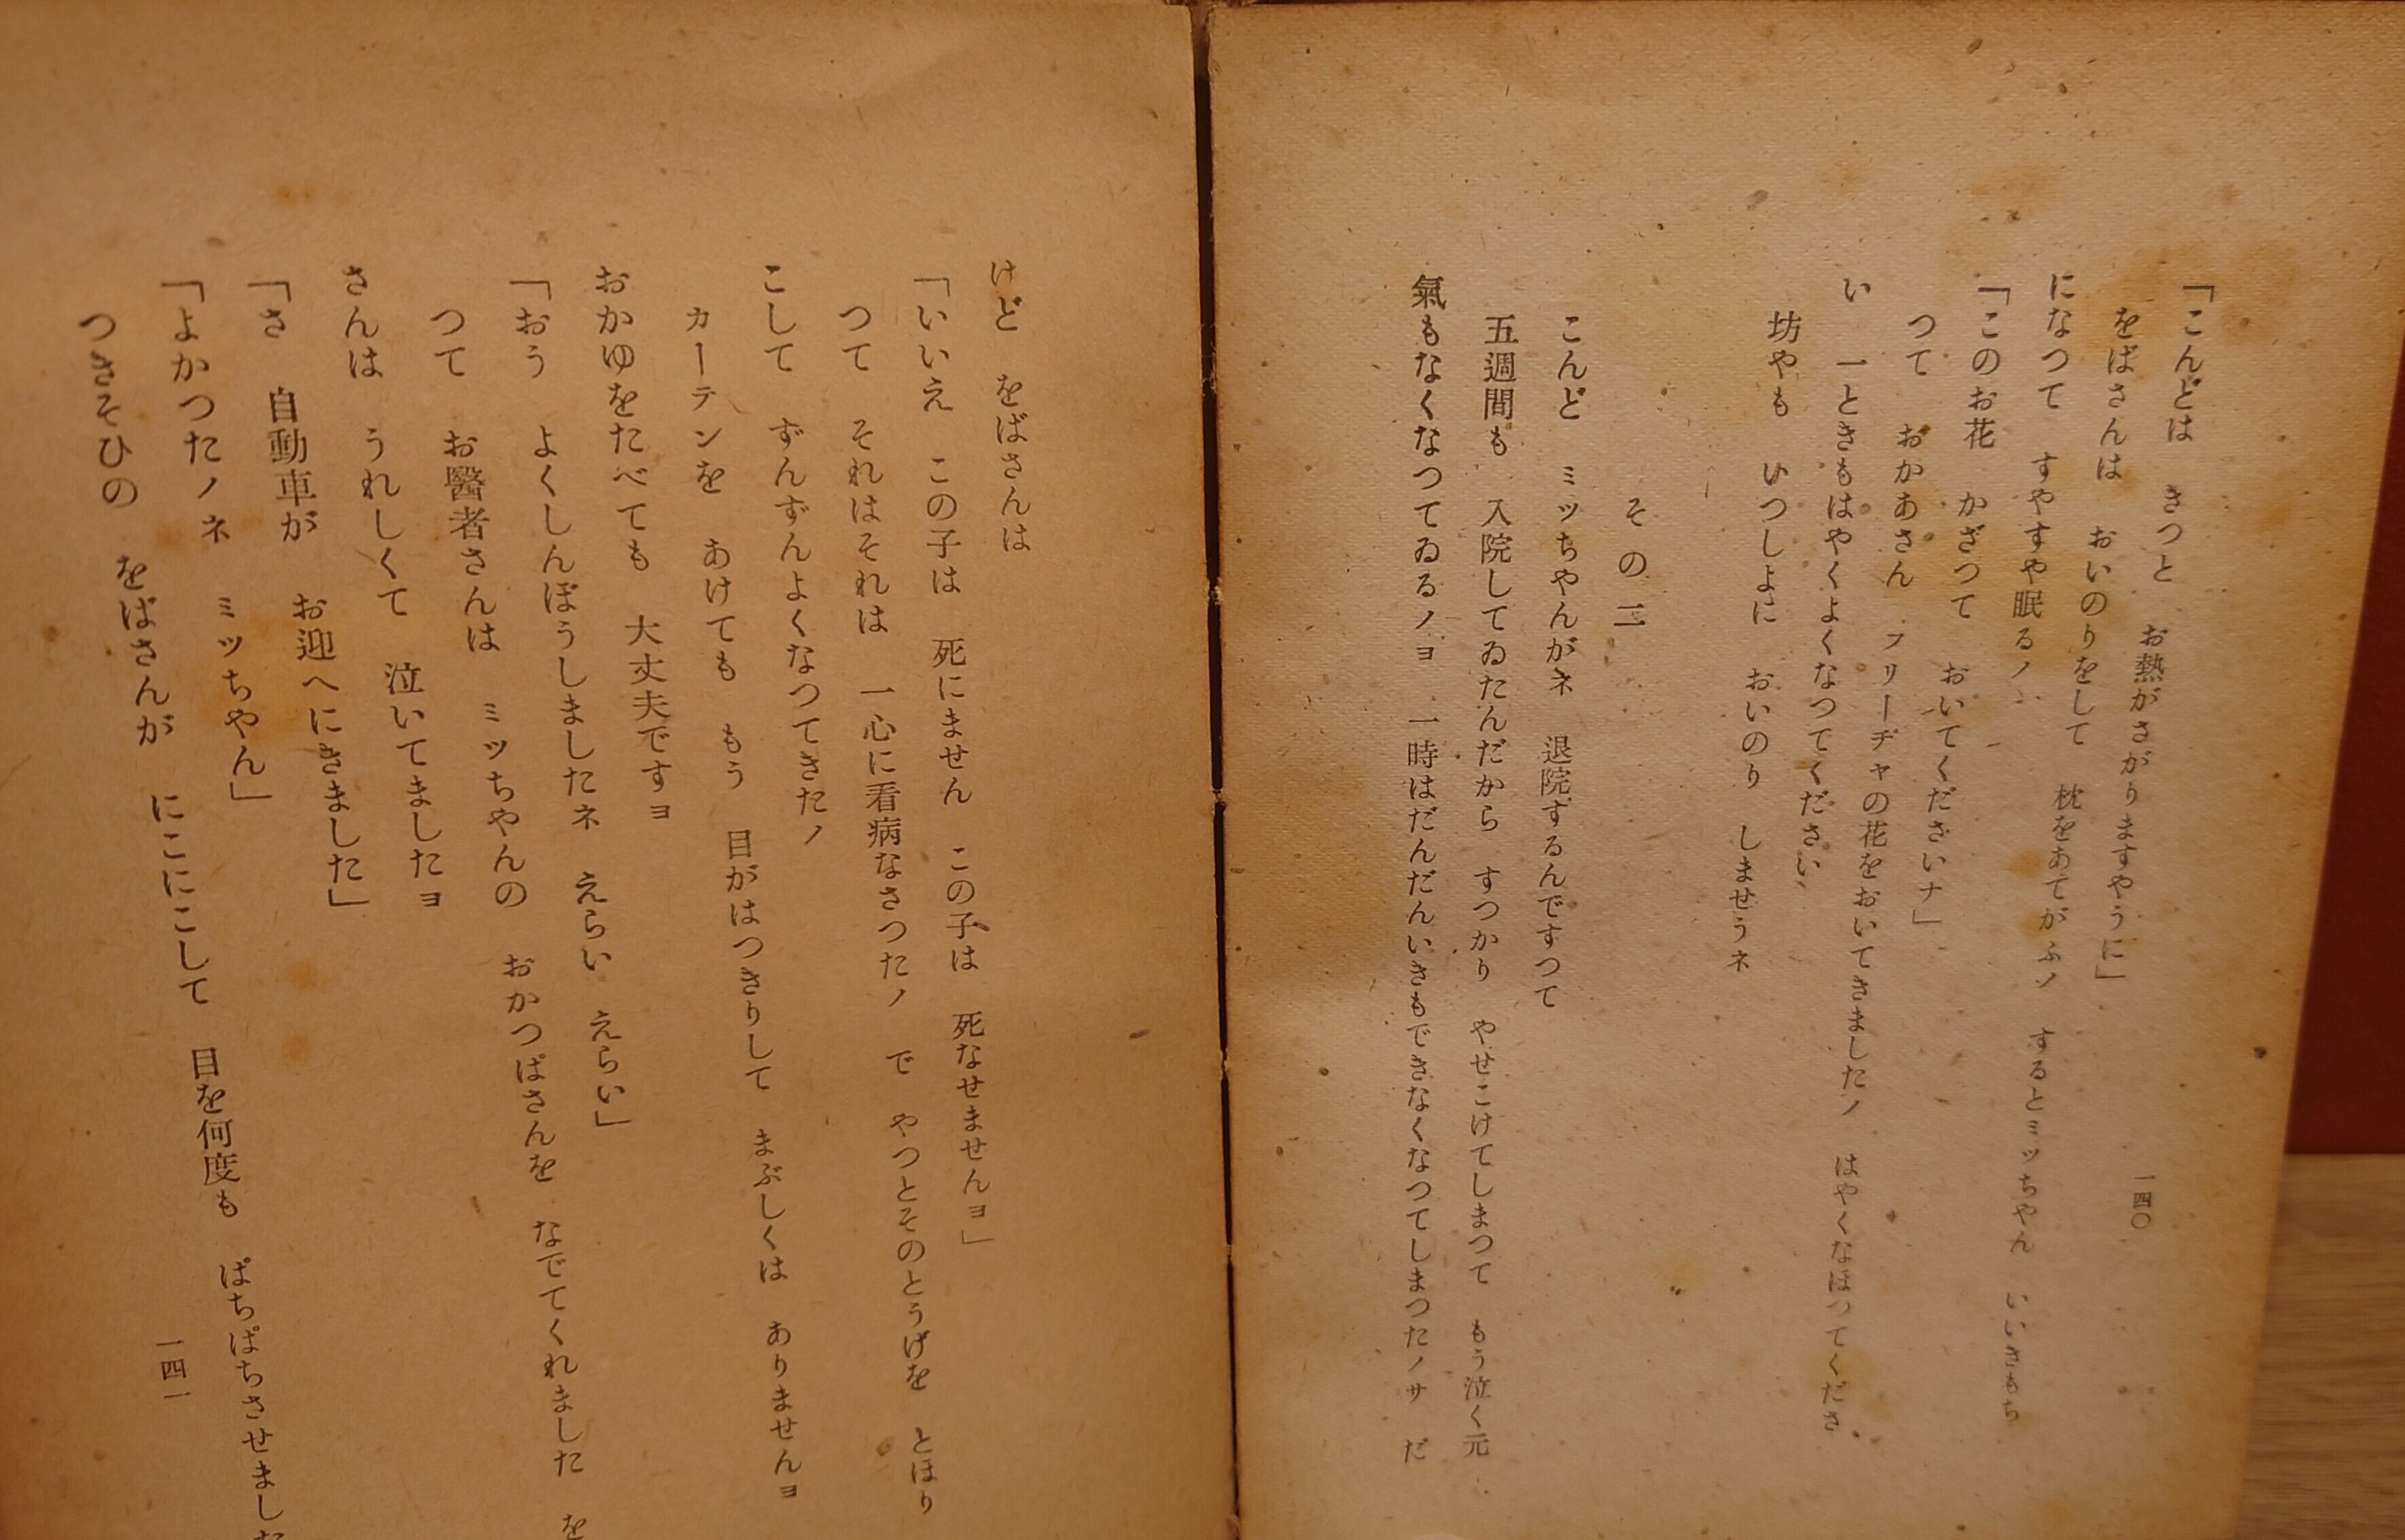 「こんどは　きつと　お熱がさがりますやうに」
をばさんは　おいのりをして　枕をあてがふノ　するとミッちやん　いいきもち
になつて　すやすや眠るノ
「このお花　かざつて　おいてくださいナ」
つて　おかあさん　フリーヂャの花をおいてきましたノ　はやくなほつてくださ
い　一ときもはやくよくなつてください
坊やも　いつしよに　おいのり　しませうネ
一四〇
その二
こんど　ミッちやんがネ　退院するんですつて
五週間も　入院してゐたんだから　すつかり　やせこけてしまつて　もう泣く元
氣もなくなつてゐるノヨ　一時はだんだんいきもできなくなつてしまつたノサ　だ
けど　をばさんは
「いいえ　この子は　死にません　この子は　死なせませんヨ」
つて　それはそれは　一心に看病なさつたノ　で　やつとそのとうげを　とほり
こして　ずんずんよくなつてきたノ
カーテンを　あけても　もう　目がはつきりして　まぶしくは　ありませんヨ
おかゆをたべても　大丈夫ですヨ
「おう　よくしんぼうしましたネ　えらい　えらい」
つて　お醫者さんは　ミッちやんの　おかつぱさんを　なでてくれました　を
さんは　うれしくて　泣いてましたヨ
「さ　自動車が　お迎へにきました」
「よかつたノネ　ミッちやん」
つきそひの　をばさんが　にこにこして　目を何度も　ぱちぱちさせました
一四一